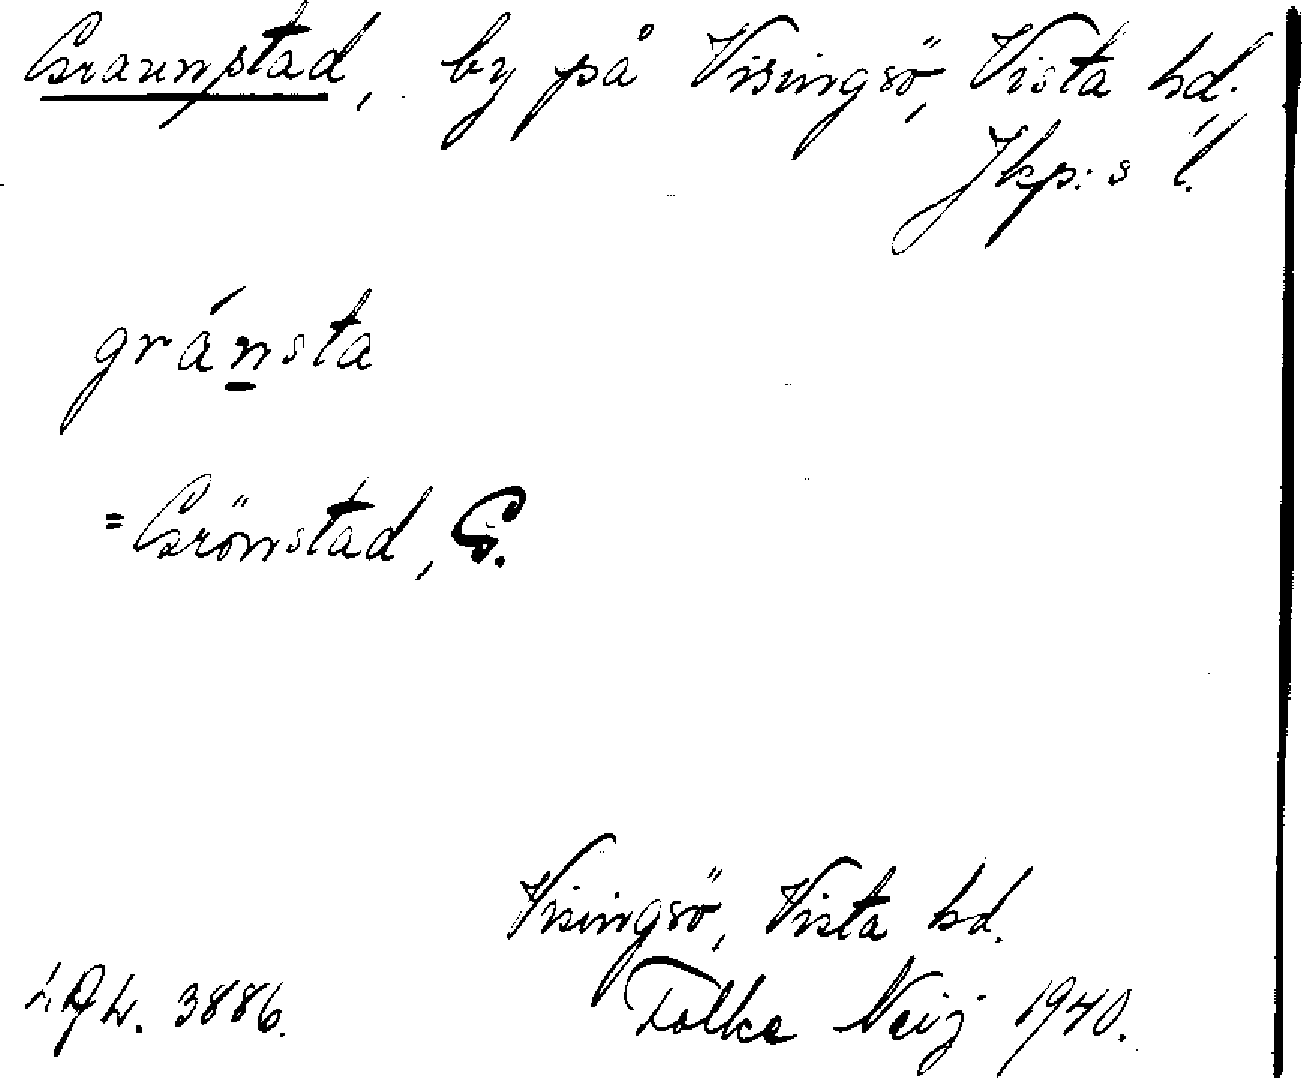 Graunstad, by på Visingsö, Vista hd.
Jkp:s l.
gránsta
= Grönstad, G.
Visingsö, Vista hd.
3886. Folke Neij 1940.